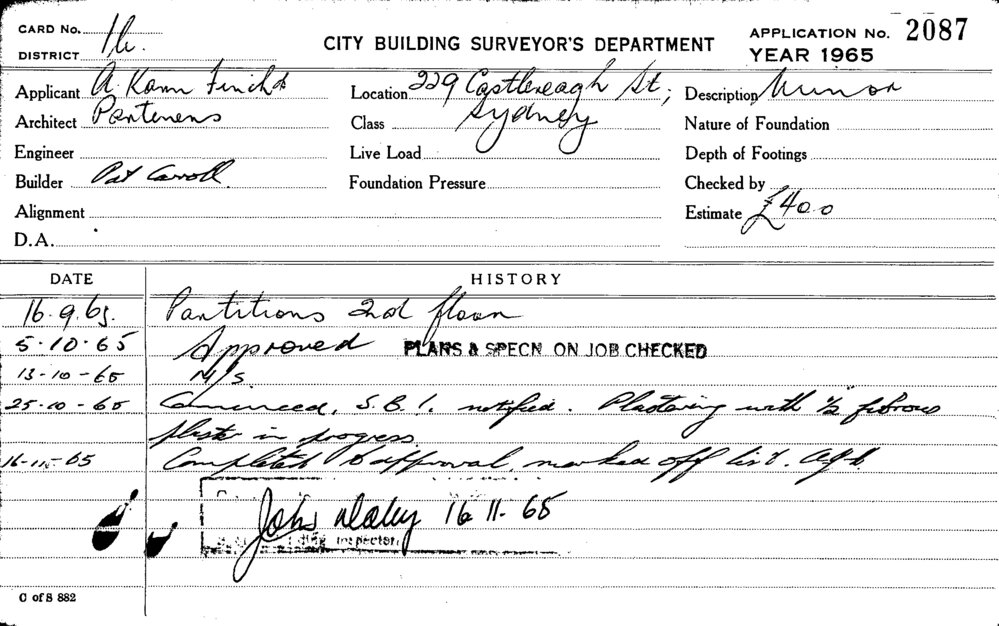 CARD No. 16.
DISTRICT
CITY BUILDING SURVEYOR'S DEPARTMENT
APPLICATION No. 2087
YEAR 1965
Applicant A Kann Finch &
Architect Partners
Engineer
Builder Pat Carroll
Alignment
D.A.
Location 229 Castlereagh St,
Class Sydney
Live Load
Foundation Pressure
Description Minor
Nature of Foundation
Depth of Footings
Checked by
Estimate £400
DATE HISTORY
16.9.65. Partitions 2nd floor
5-10-65 Approved PLANS & SPECN ON JOB CHECKED
13-10-65 N/S.
25-10-65 Commenced, S.B.I. notified. Plastering with ½ fibrous
plaster in progress.
16-11-65 Completed to approval, marked off list.
John Daley 16 11-65
ding Inspector
C of S 882